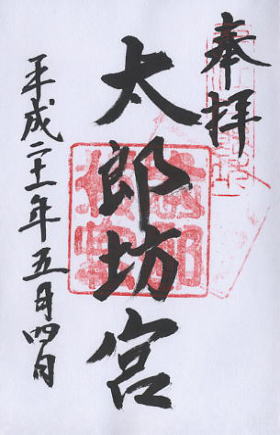 奉拝
太郎坊宮
平成二十一年五月四日